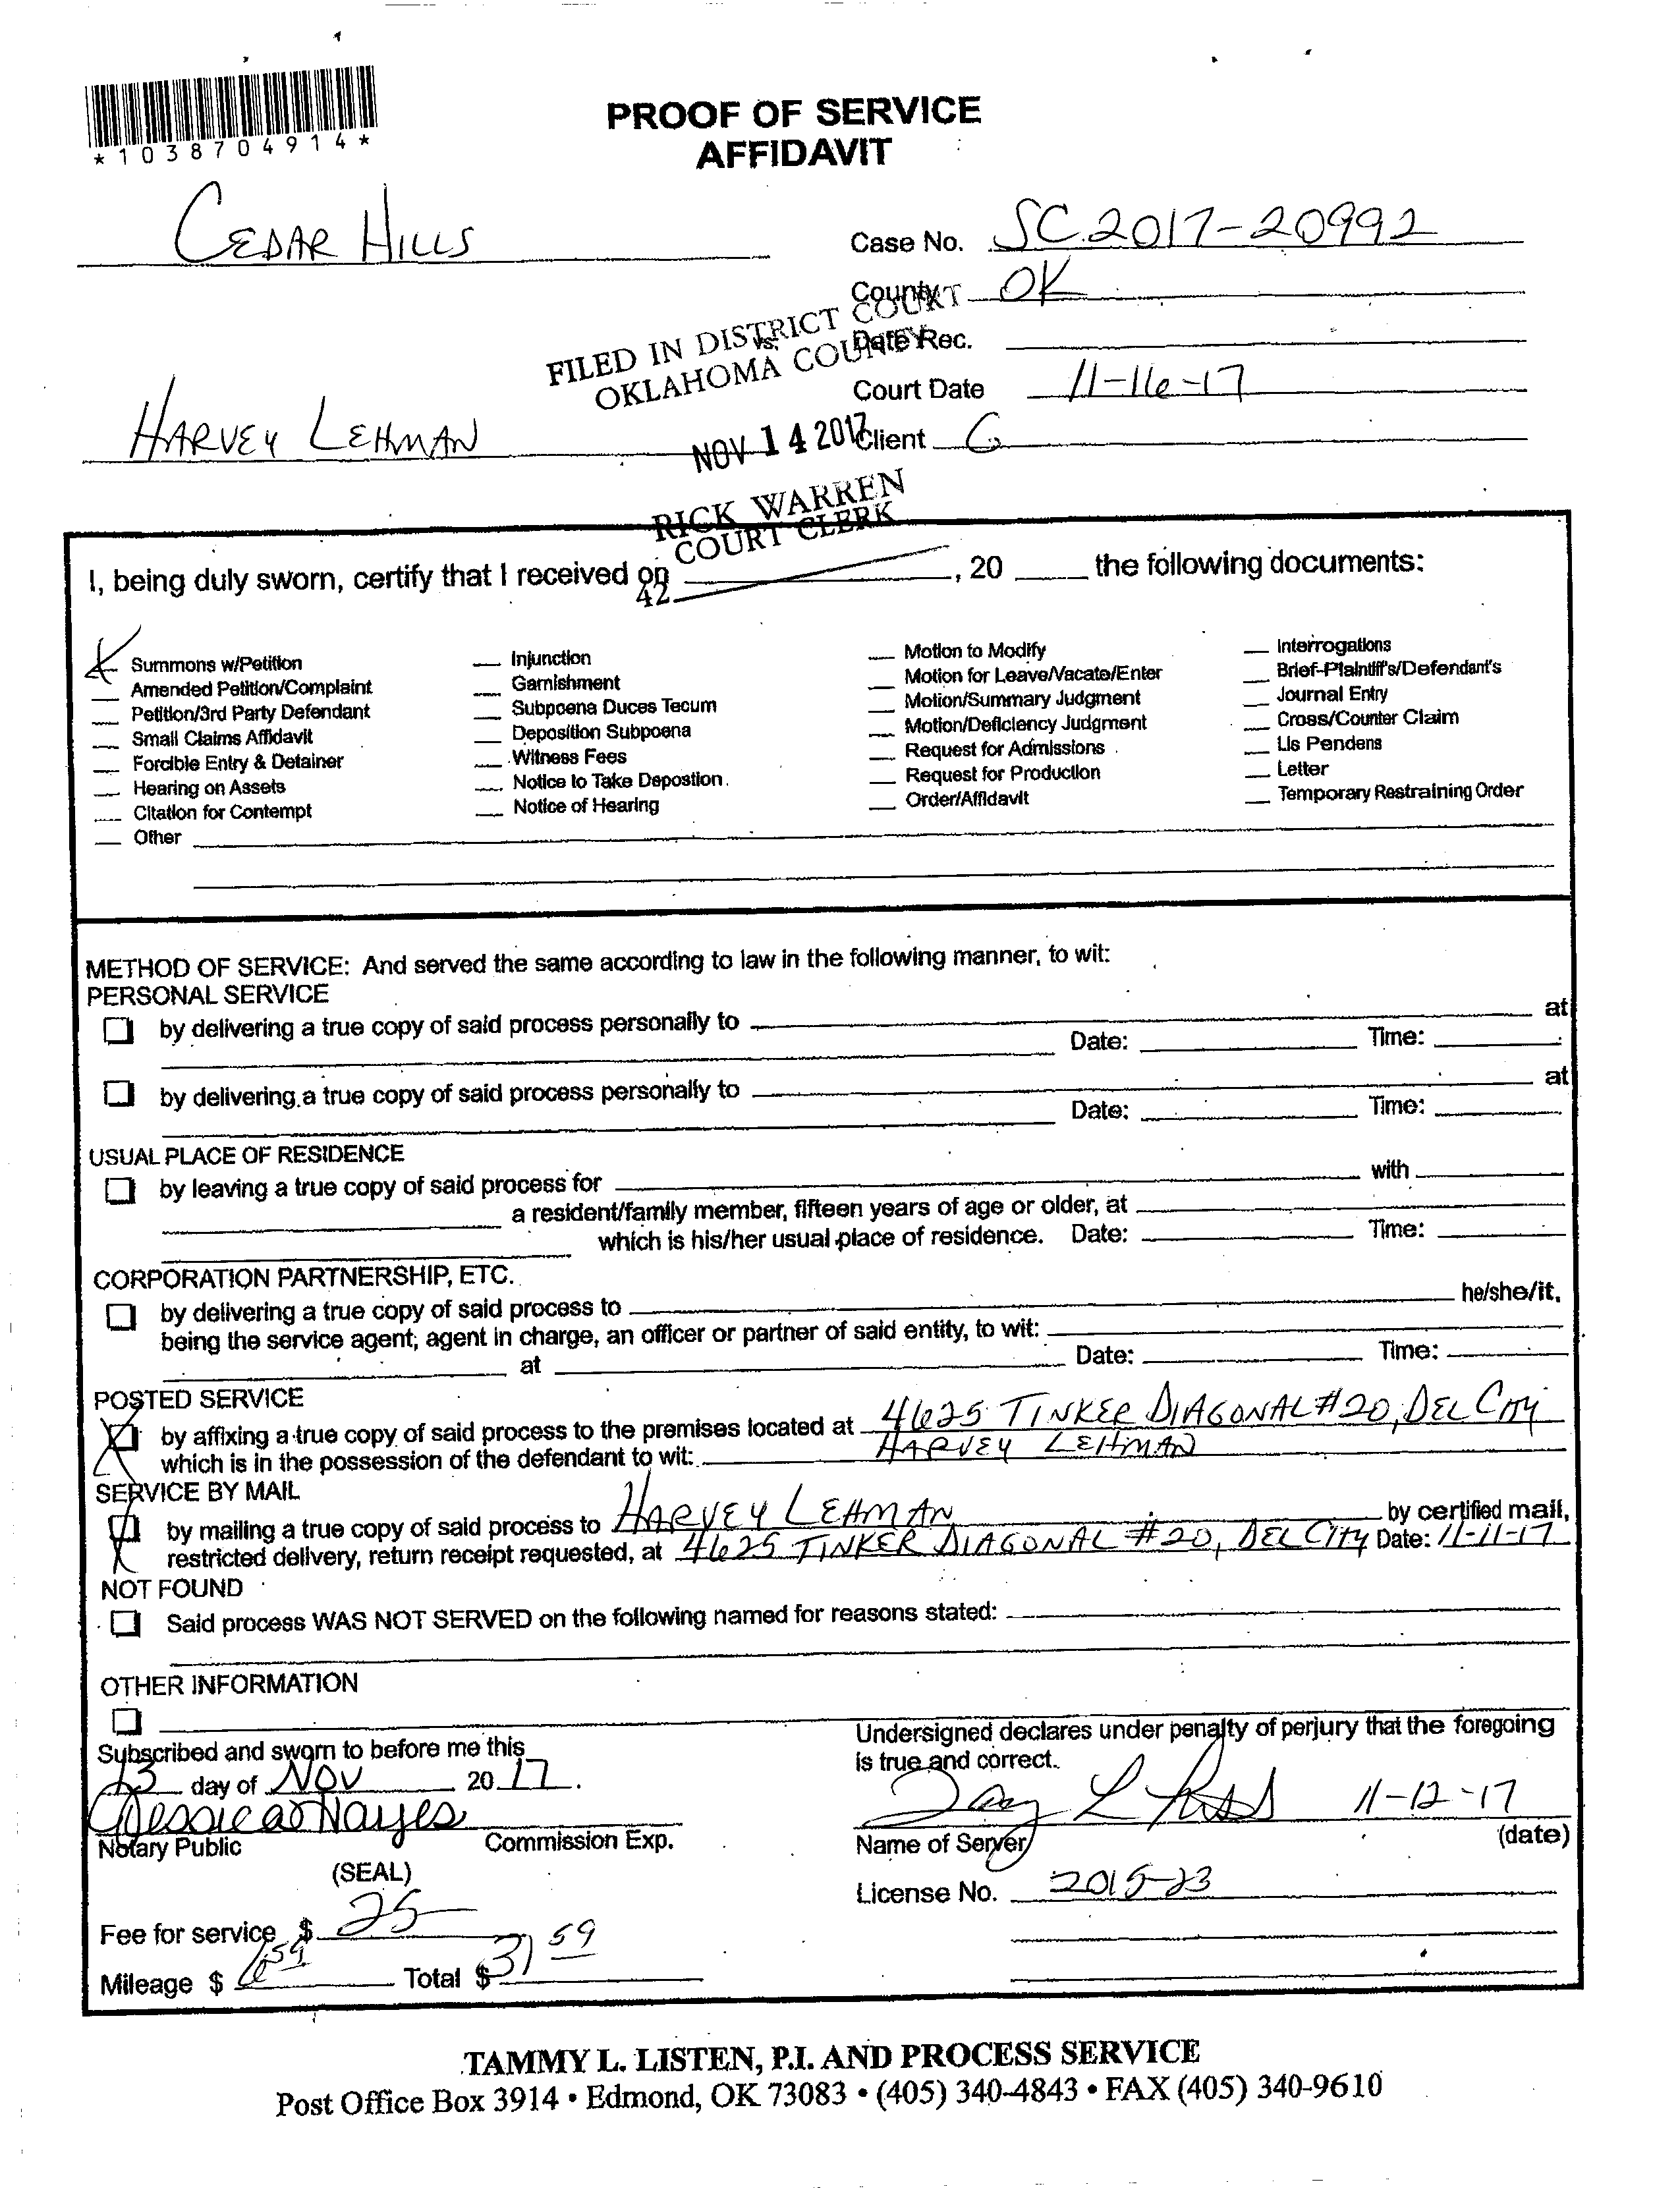 *1038704914*
PROOF OF SERVICE
AFFIDAVIT
CEDAR HILLS
Case No. SC.2017-20992
County OK
FILED IN DISTRICT COURT
OKLAHOMA COUNTY
vs.
Date Rec.
Court Date 11-16-17
HARVEY LEHMAN
NOV 14 2017
Client G
RICK WARREN
COURT CLERK
42
I, being duly sworn, certify that I received on ____, 20 ____ the following documents:
X Summons w/Petition
Amended Petition/Complaint
Petition/3rd Party Defendant
Small Claims Affidavit
Forcible Entry & Detainer
Hearing on Assets
Citation for Contempt
Other
Injunction
Garnishment
Subpoena Duces Tecum
Deposition Subpoena
Witness Fees
Notice to Take Depostion.
Notice of Hearing
Motion to Modify
Motion for Leave/Vacate/Enter
Motion/Summary Judgment
Motion/Deficiency Judgment
Request for Admissions
Request for Production
Order/Affidavit
Interrogations
Brief-Plaintiff's/Defendant's
Journal Entry
Cross/Counter Claim
Lis Pendens
Letter
Temporary Restraining Order
METHOD OF SERVICE: And served the same according to law in the following manner, to wit:
PERSONAL SERVICE
by delivering a true copy of said process personally to ____ at
Date: ____ Time: ____
by delivering a true copy of said process personally to ____ at
Date: ____ Time: ____
USUAL PLACE OF RESIDENCE
by leaving a true copy of said process for ____ with ____
a resident/family member, fifteen years of age or older, at ____
which is his/her usual place of residence. Date: ____ Time: ____
CORPORATION PARTNERSHIP, ETC.
by delivering a true copy of said process to ____ he/she/it,
being the service agent; agent in charge, an officer or partner of said entity, to wit: ____
at ____ Date: ____ Time: ____
POSTED SERVICE
X by affixing a true copy of said process to the premises located at 4625 TINKER DIAGONAL #20, DEL CITY
which is in the possession of the defendant to wit: HARVEY LEHMAN
SERVICE BY MAIL
X by mailing a true copy of said process to HARVEY LEHMAN by certified mail,
restricted delivery, return receipt requested, at 4625 TINKER DIAGONAL #20, DEL CITY Date: 11-11-17
NOT FOUND
Said process WAS NOT SERVED on the following named for reasons stated:
OTHER INFORMATION
Subscribed and sworn to before me this
13 day of NOV 20 17.
Notary Public Commission Exp.
(SEAL)
Fee for service $ 25
Mileage $ 6 59 Total $ 31 59
Undersigned declares under penalty of perjury that the foregoing
is true and correct.
11-12-17
Name of Server (date)
License No. 2015-23
TAMMY L. LISTEN, P.I. AND PROCESS SERVICE
Post Office Box 3914 • Edmond, OK 73083 • (405) 340-4843 • FAX (405) 340-9610